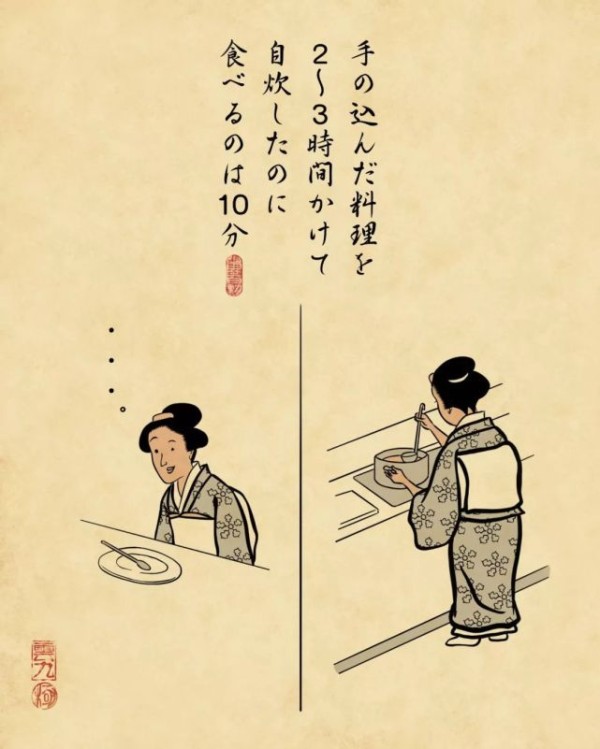 手の込んだ料理を
2〜3時間かけて
自炊したのに
食べるのは10分
・・・。